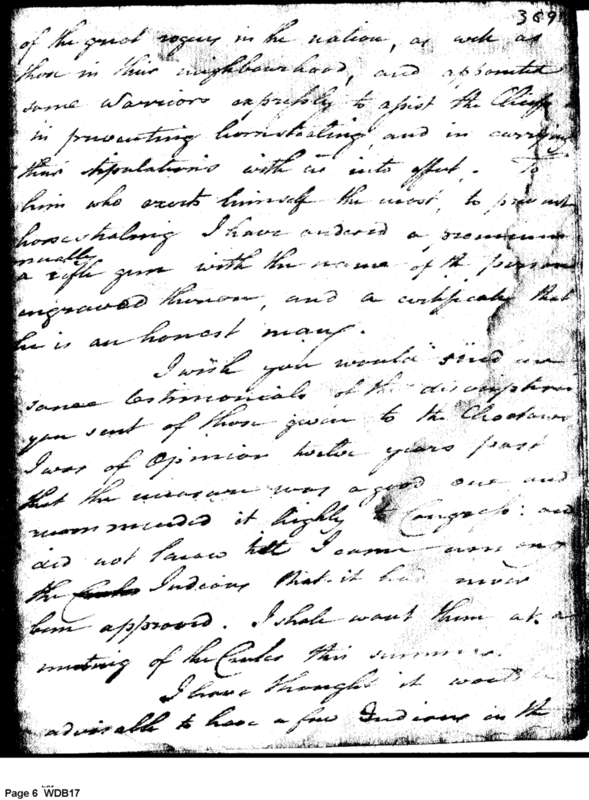 369
of the great rogues in the nation, as well as
those in this neighbourhood, and appointed
some Warriors expressly to assist the Chiefs
in preventing horsestealing, and in carrying
their stipulations with us into effect. To
him who exerts himself the most, to prevent
horsestealing I have ordered a premium
annually
a rifle gun with the name of the person
engraved thereon, and a certificate that
he is an honest man.
I wish you would send me
some testimonials of the discription
you sent of those given to the Choctaws
I was of Opinion twelve years past
that the measure was a good one and
recommended it highly to Congress: and
did not know till I came among
the Indians that it had never
been approved. I shall want them at a
meeting of the Creeks this summer.
I have thought it would be
advisable to have a few Indians in the
Page 6 WDB17